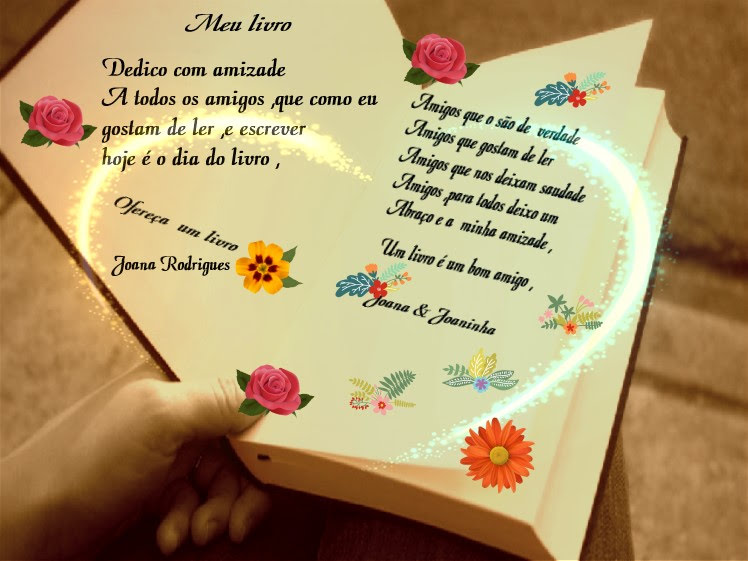 Meu livro
Dedico com amizade
A todos os amigos ,que como eu
gostam de ler ,e escrever
hoje é o dia do livro ,
Ofereça um livro
Joana Rodrigues
Amigos que o são de verdade
Amigos que gostam de ler
Amigos que nos deixam saudade
Amigos ,para todos deixo um
Abraço e a minha amizade ,
Um livro é um bom amigo ,
Joana & Joaninha